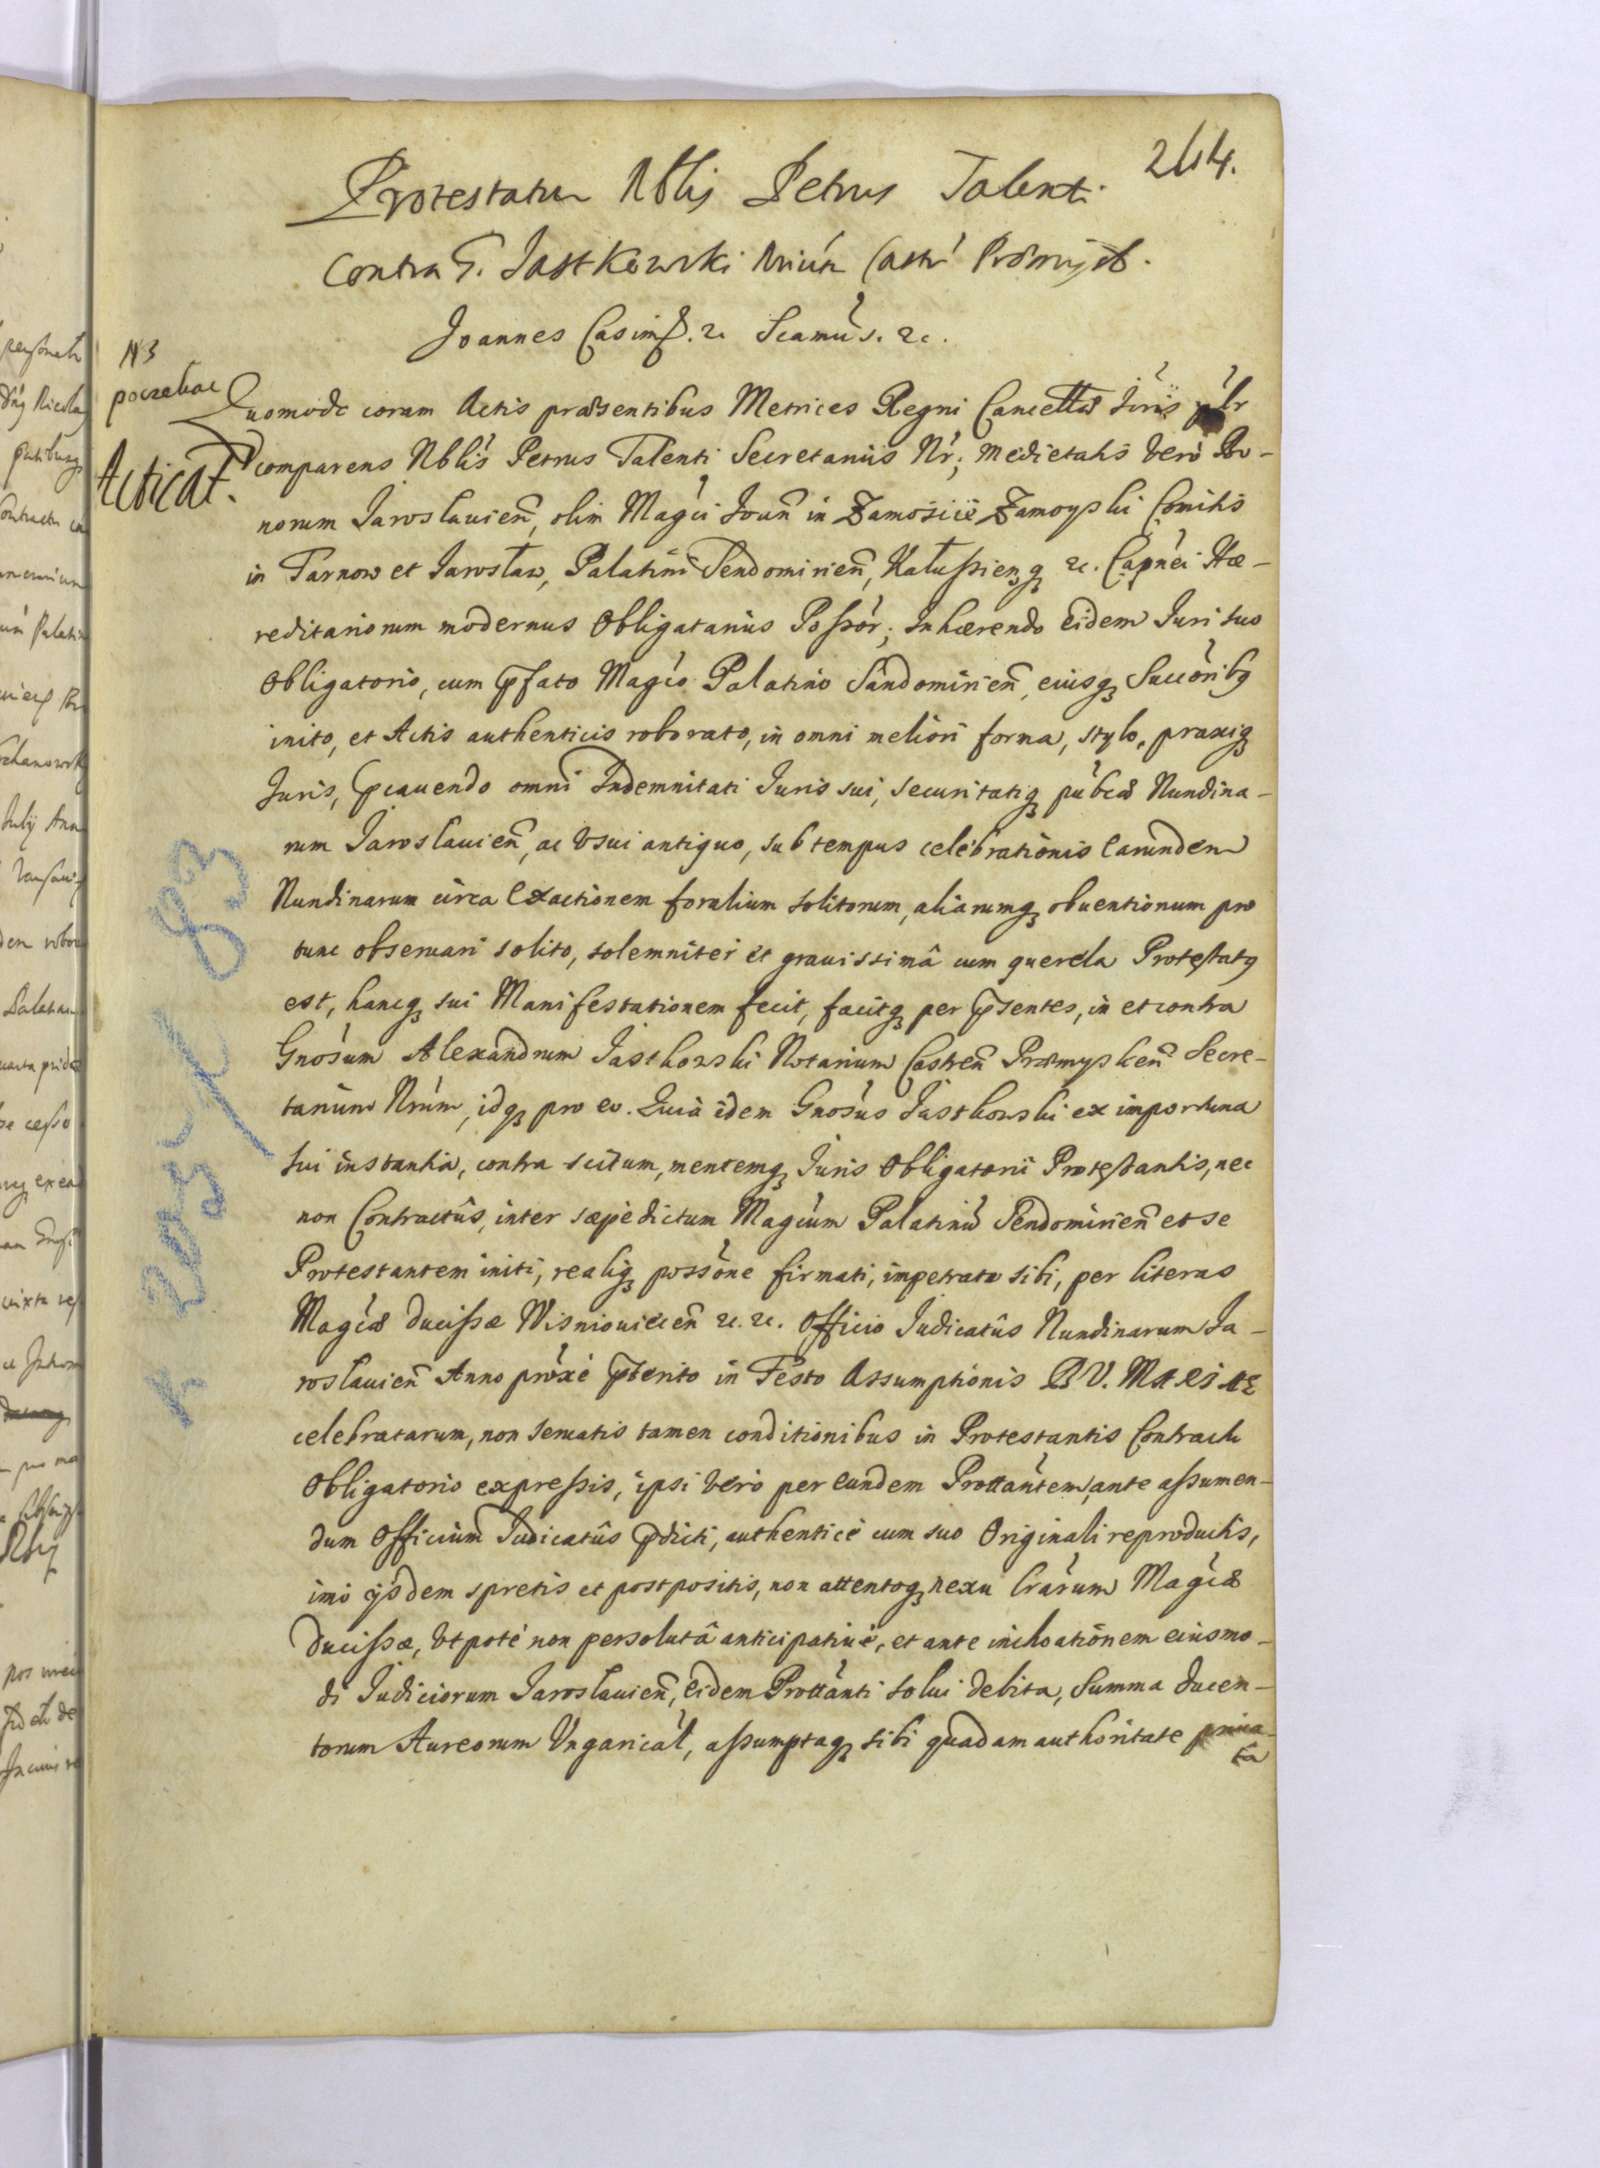 244.
Protestatur Nblis Petrus Talenti
Contra G. Jastkowski Castr Præmysl.
Joannes Casim9. &c. Seamus. &c.
N3
Quomodo coram Actis præsentibus Metrices Regni Cancellæ Juris plr
Acticat.
comparens Nblis Petrus Talenti Secretarius Nr; medietatis verò Bo-
norum Jaroslauien, olim Magci Joan in Zamoscie Zamoyski Comitis
in Tarnow et Jarosław, Palatini Sendomirien, Kałussienq &c. Capnei Hæ-
reditariorum modernus Obligatarius Possor; Inhærendo eidem Juri suo
Obligatorio, cum pfato Magco Palatino Sandomirien, eiusq Succoribq
inito, et Actis authenticis roborato, in omni meliori forma, stylo, praxiq
Juris, pcauendo omni Indemnitati Juris sui, securitatiq pubcæ Nundina-
rum Jaroslauien, ac vsui antiquo, sub tempus celebrationis earundem
Nundinarum circa Exactionem foralium solitorum, aliarumq obuentionum pro
tunc obseruari solito, solemniter et grauissimâ cum querela Protestatq
est, hancq sui Manifestationem fecit, facitq per psentes, in et contra
Gnosum Alexandrum Jastkowski Notarium Castren Præmyslien Secre-
tarium Nrum, idq pro eo. Quia idem Gnosus Jastkowski ex importuna
sui instantia, contra scitum, mentemq Juris Obligatorii Protestantis, nec
non Contractûs, inter sæpedictum Magcum Palatinu Sendomirien et se
Protestantem initi, realiq possone firmati, impetrato sibi, per literas
Magcæ Ducissæ Wisniouiecen &c. &c. Officio Judicatûs Nundinarum Ja-
roslauien Anno proxe pterito in Festo Assumptionis B V. MARIÆ
celebratarum, non seruatis tamen conditionibus in Protestantis Contractu
Obligatorio expressis, ipsi verò per eundem Prottantem, ante assumen-
dum Officium Judicatûs pdicti, authenticè cum suo Originali reproductis,
imò ijsdem spretis et postpositis, non attentoq nexu lrarum Magcæ
Ducissæ, vtpotè non persolutâ anticipatiuè, et ante inchoationem eiusmo-
di Judiciorum Jaroslauien, eidem Prottanti solui debita, Summa ducen-
torum Aureorum Vngarical, assumptaq sibi quadam authoritate priua-
ta